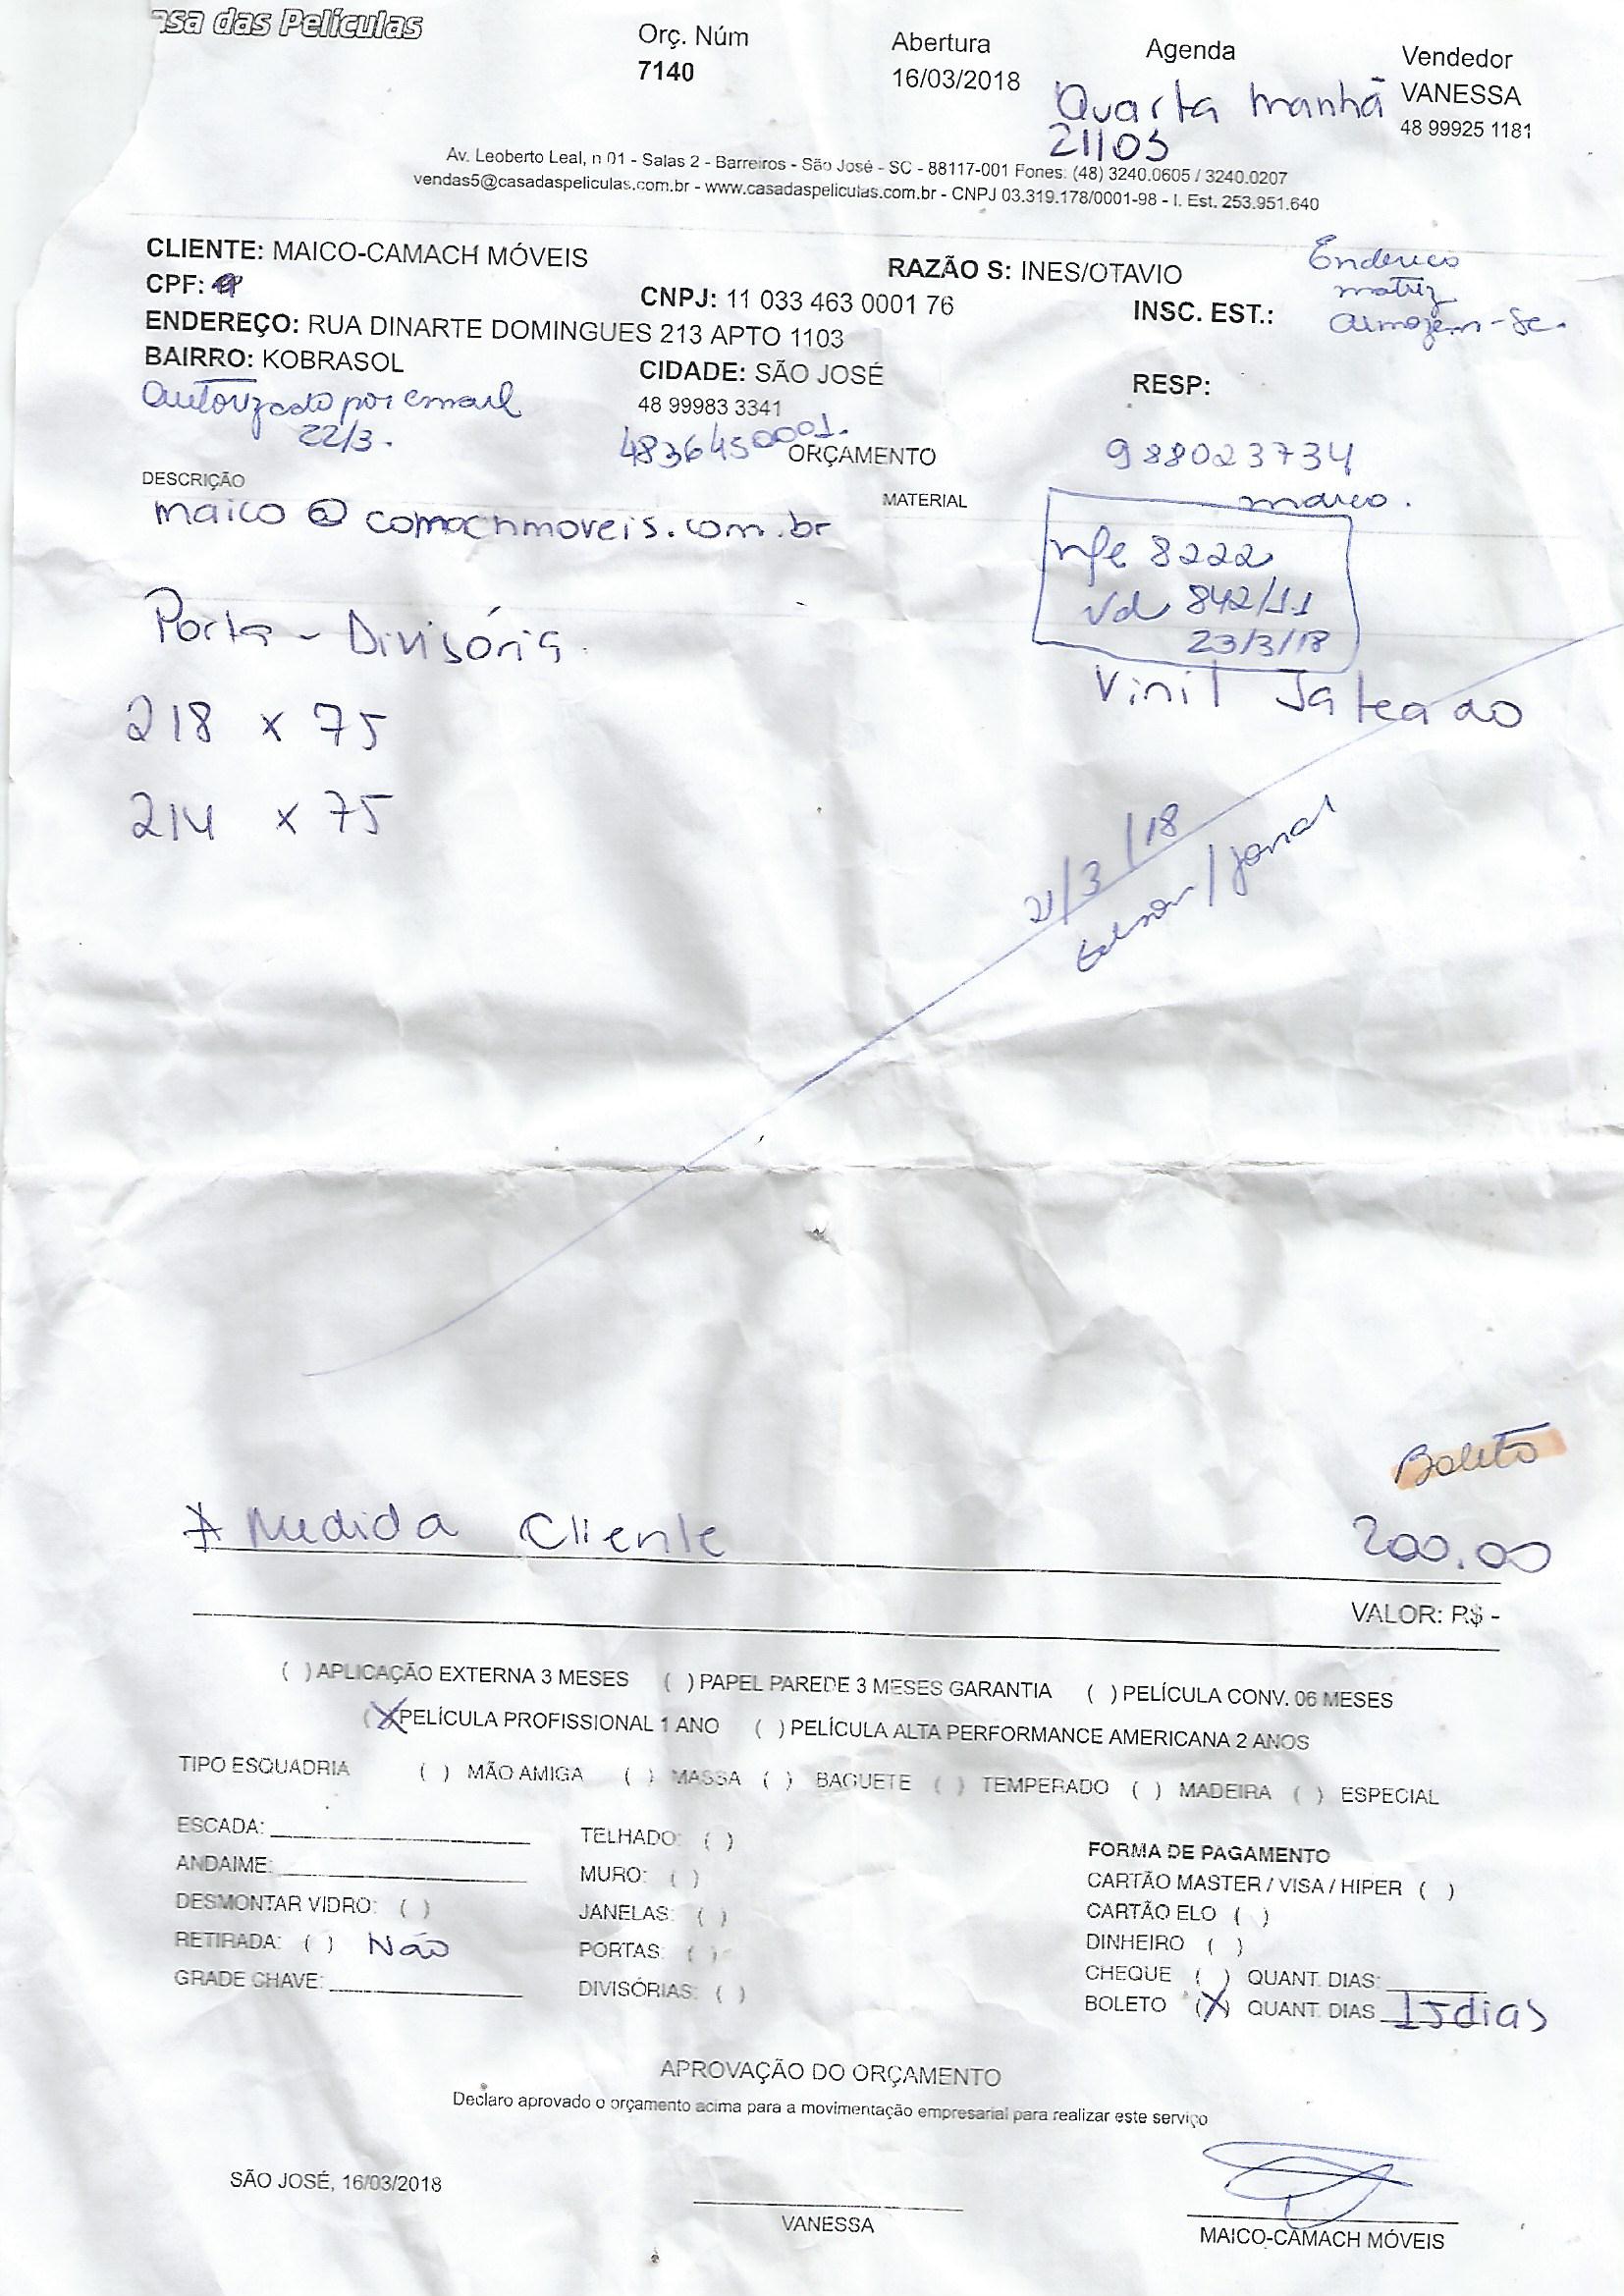 asa das Películas
Orç. Núm Abertura Agenda Vendedor
7140 16/03/2018 Quarta manhã VANESSA
21/03 48 99925 1181
Av. Leoberto Leal, n 01 - Salas 2 - Barreiros - São José - SC - 88117-001 Fones: (48) 3240.0605 / 3240.0207
vendas5@casadaspeliculas.com.br - www.casadaspeliculas.com.br - CNPJ 03.319.178/0001-98 - I. Est. 253.951.640
CLIENTE: MAICO-CAMACH MÓVEIS RAZÃO S: INES/OTAVIO Endereço
CPF: CNPJ: 11 033 463 0001 76 INSC. EST.: matriz
ENDEREÇO: RUA DINARTE DOMINGUES 213 APTO 1103 Armazém-SC.
BAIRRO: KOBRASOL CIDADE: SÃO JOSÉ RESP:
Autorizado por email 48 99983 3341
22/3. 4836450001. ORÇAMENTO 988023734
DESCRIÇÃO MATERIAL maico.
maico@camachmoveis.com.br
nfe 8222
vd 842/11
23/3/18
Porta - Divisória
Vinil Jateado
218 x 75
214 x 75
21/3/18
Edson/
Boleto
* Medida Cliente 200.00
VALOR: R$ -
( ) APLICAÇÃO EXTERNA 3 MESES ( ) PAPEL PAREDE 3 MESES GARANTIA ( ) PELÍCULA CONV. 06 MESES
(X) PELÍCULA PROFISSIONAL 1 ANO ( ) PELÍCULA ALTA PERFORMANCE AMERICANA 2 ANOS
TIPO ESQUADRIA ( ) MÃO AMIGA ( ) MASSA ( ) BAGUETE ( ) TEMPERADO ( ) MADEIRA ( ) ESPECIAL
ESCADA: TELHADO: ( ) FORMA DE PAGAMENTO
ANDAIME: MURO: ( ) CARTÃO MASTER / VISA / HIPER ( )
DESMONTAR VIDRO: ( ) JANELAS: ( ) CARTÃO ELO ( )
RETIRADA: ( ) Não PORTAS: ( ) DINHEIRO ( )
GRADE CHAVE: DIVISÓRIAS: ( ) CHEQUE ( ) QUANT. DIAS:
BOLETO (X) QUANT. DIAS 15 dias
APROVAÇÃO DO ORÇAMENTO
Declaro aprovado o orçamento acima para a movimentação empresarial para realizar este serviço
SÃO JOSÉ, 16/03/2018
VANESSA MAICO-CAMACH MÓVEIS